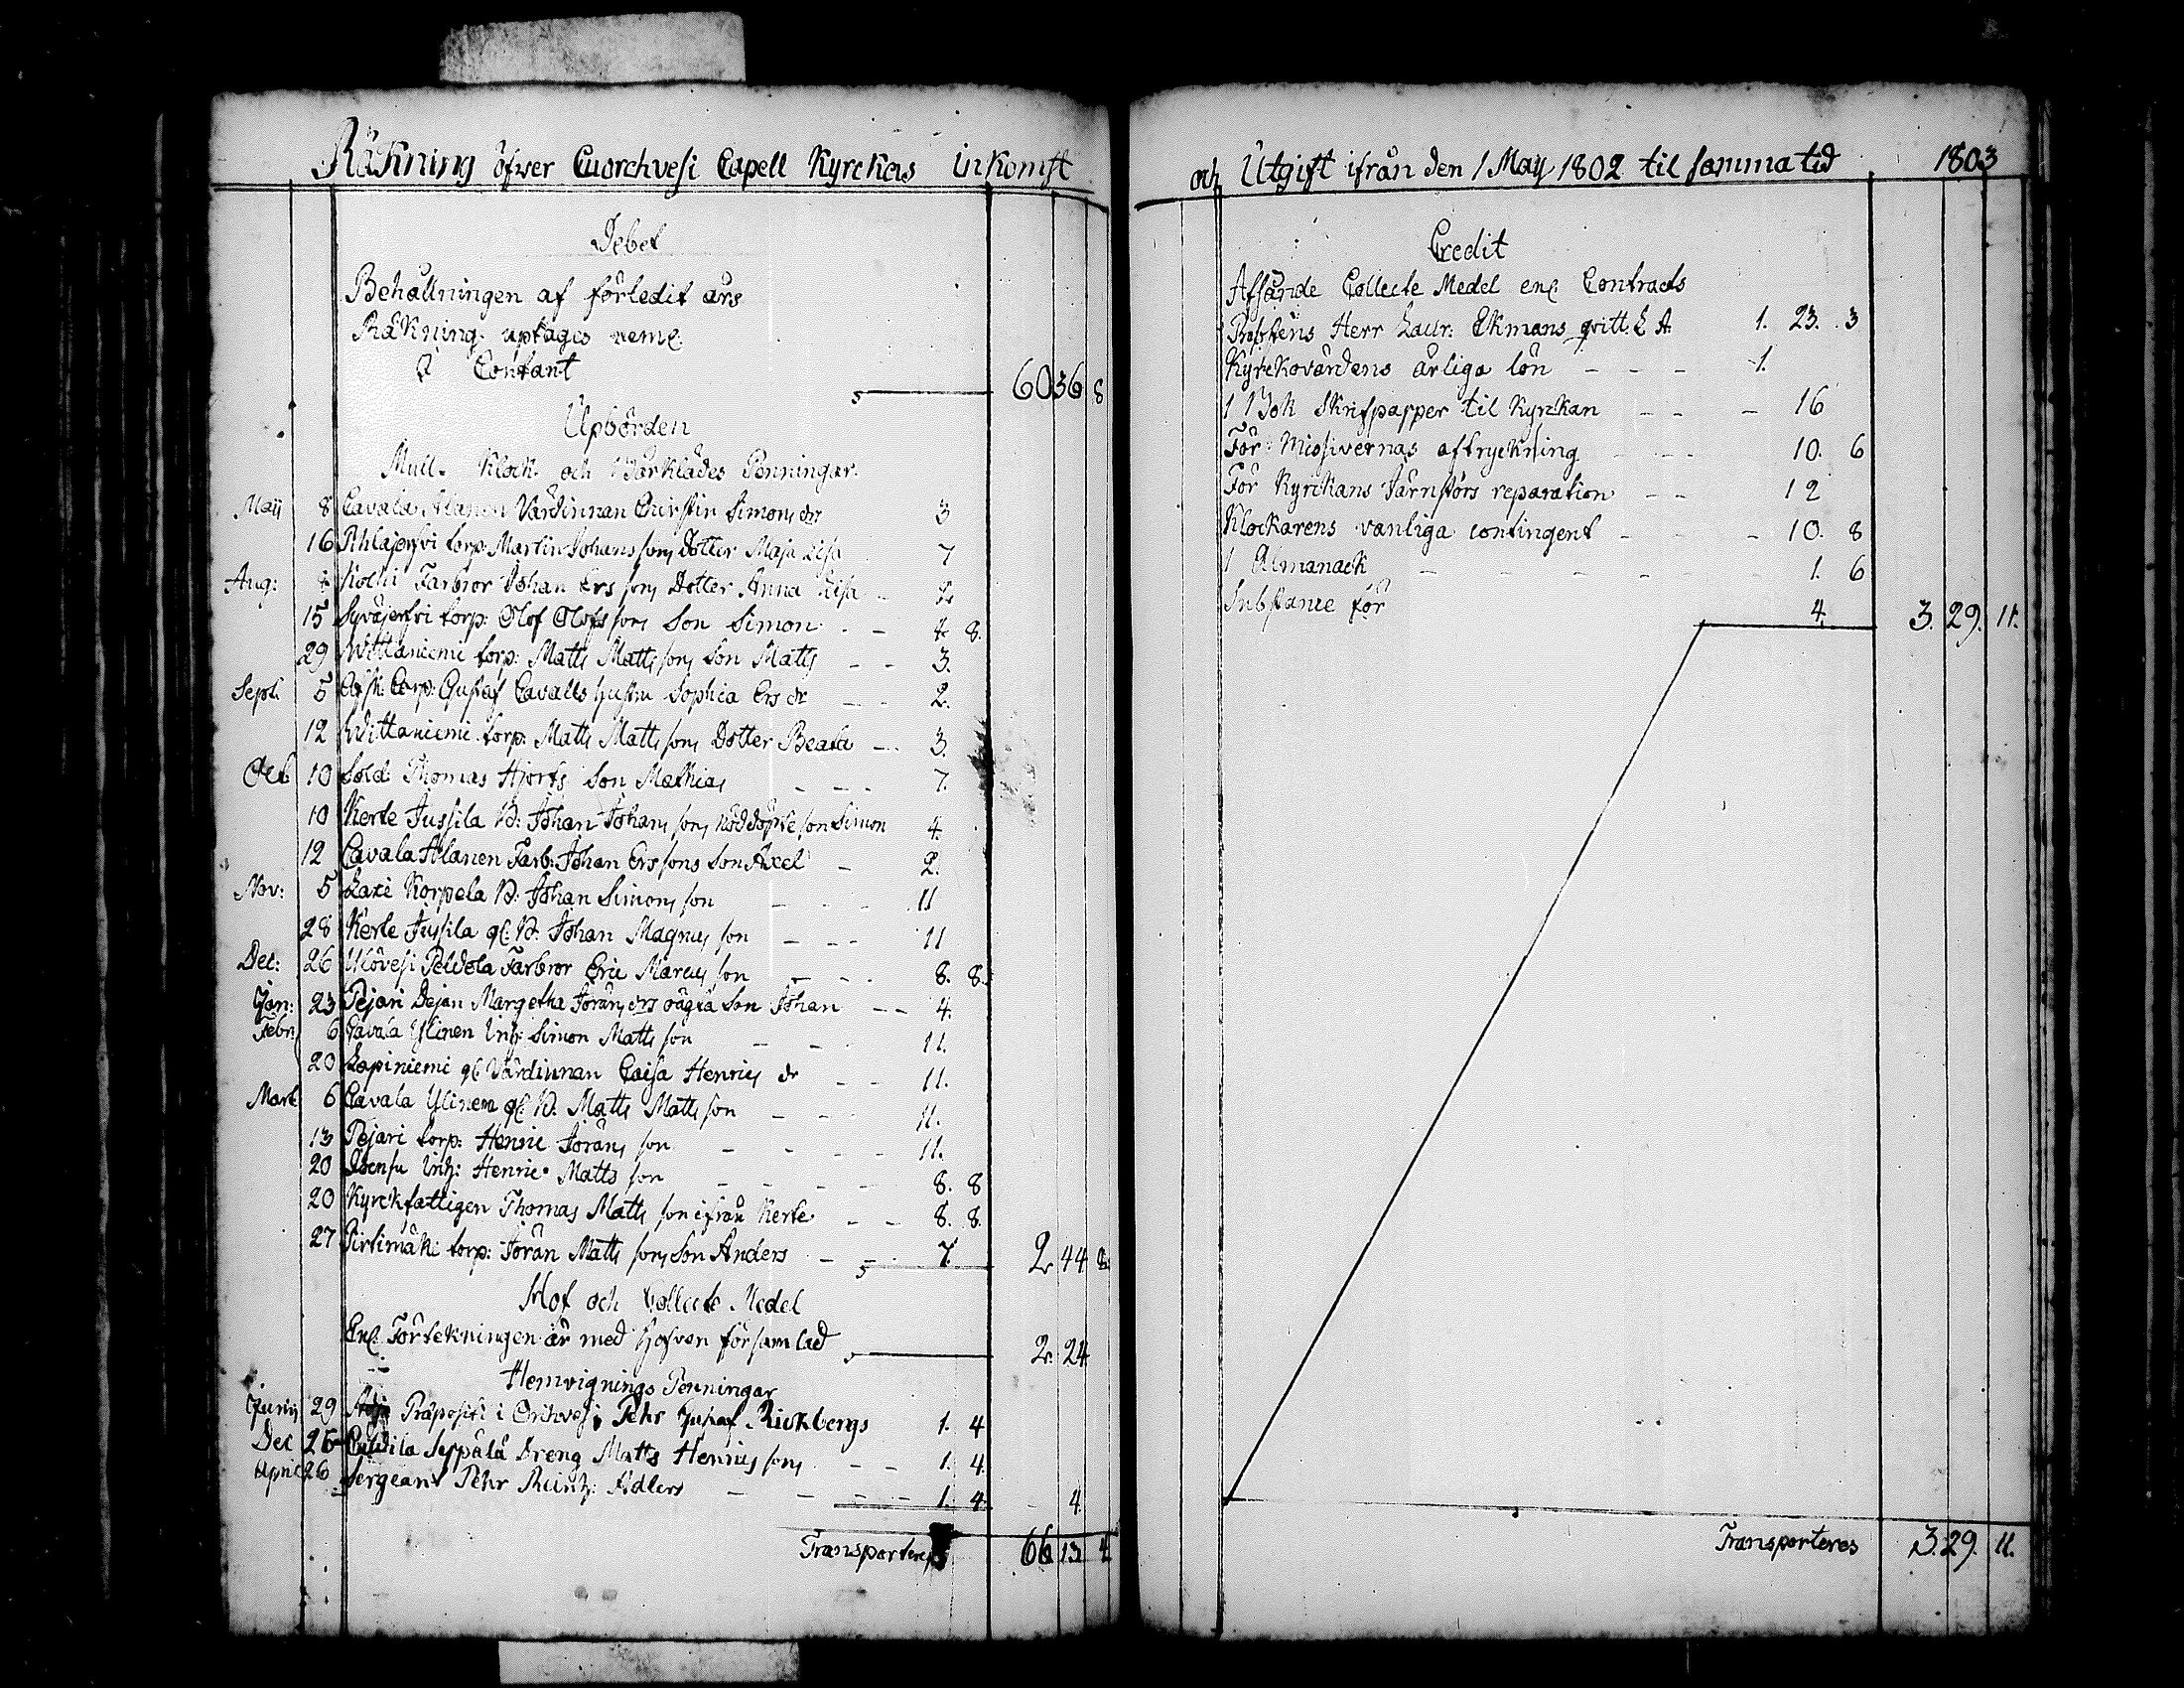 Räkning öfwer Cuorchvesi Capell Kyrckas inkomst
Debet
Behållningen af förledit års
Räkning uptages neml.
Contant 60 36 8
Upbörden
Mull- Klock- och Bårklädes Penningar.
Maij 8 Cavala Alanen Värdinnan Christin Simons dr 3
16 Pihlajerfvi torp: Martin Johans sons Dotter Maja Lisa 7
Aug: Farbror Johan Ers sons Dotter Anna Lisa 2
15 Syväjerfvi torp: Olof Olofs sons Son Simon 4 8.
29 Wittaniemi torp: Matts Matts sons Son Matts 3.
Sept: 5 Corp: Gustaf Cavalls hustru Sophia Ers dr 2.
12 Wittaniemi torp: Matts Matts sons Dotter Beata 3.
Oct 10 Sold: Thomas Hjorts Son Mathias 7.
10 Kerte Jussila B: Johan Johans sons nöddöpte son Simon 4.
12 Cavala Alanen Farb: Johan Ers sons Son Axel 2.
Nov: 5 Laxi Korpela B: Johan Simons son 11
28 Kerte Jussila gl. B. Johan Magnus son 11
Dec: 26 Ulövesi Peldola Farbror Eric Marcus son 8. 8.
Jan: 23 Pejari Dejan Margetha Jörans drs oägta Son Johan 4.
Febr: 6 Cavala Ylinen Inh: Simon Matts son 11.
20 Lapiniemi gl. Värdinnan Caisa Henrics dr 11.
Mart 6 Cavala Ylinen gl. B. Matts Matts son 11.
13 Pejari torp: Henric Jörans son 11.
20 Inh: Henric Matts son 8. 8
20 Kyrckfattigen Thomas Matts son ifrån Kerte 8. 8.
27 Pirtimäki torp: Jöran Matts sons Son Anders 7. 2 44 8
Hof och Collecte Medel
Enl. Förtekningen är med Hofven församlad 2. 24
Hemvignings Penningar
Junij 29 Præpositi i Orihvesi Pehr Gustaf Rickbergs 1. 4
Dec 26 Seppälä Dreng Matts Henrics sons 1. 4.
April 26 Sergeant Pehr Reinh: Adlers 1. 4. 4.
Transporteres 66 13 4
och Utgift ifrån den 1 May 1802 til samma tid 1803
Credit
Afsände Collecte Medel enl. Contracts
Prostens Herr Laur: Ekmans qvitt. L A. 1. 23. 3
Kyrckovärdens årliga lön 1.
1 Bok Skrifpapper til Kyrckan 16
För Missivernas aftryckning 10. 6
För Kyrckans Järnstörs reparation 12
Klockarens vanliga contingent 10. 8
1 Almanack 1. 6
för 4. 3. 29. 11.
Transporteres 3. 29. 11.